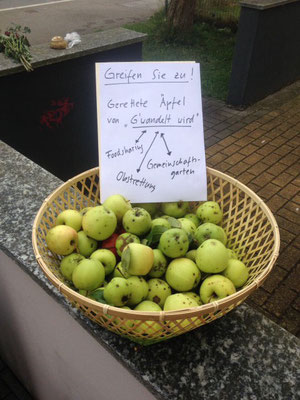 Greifen Sie zu!
Gerettete Äpfel
von "G'wandelt wird"
Foodsharing
Gemeinschafts-
garten
Obstrettung